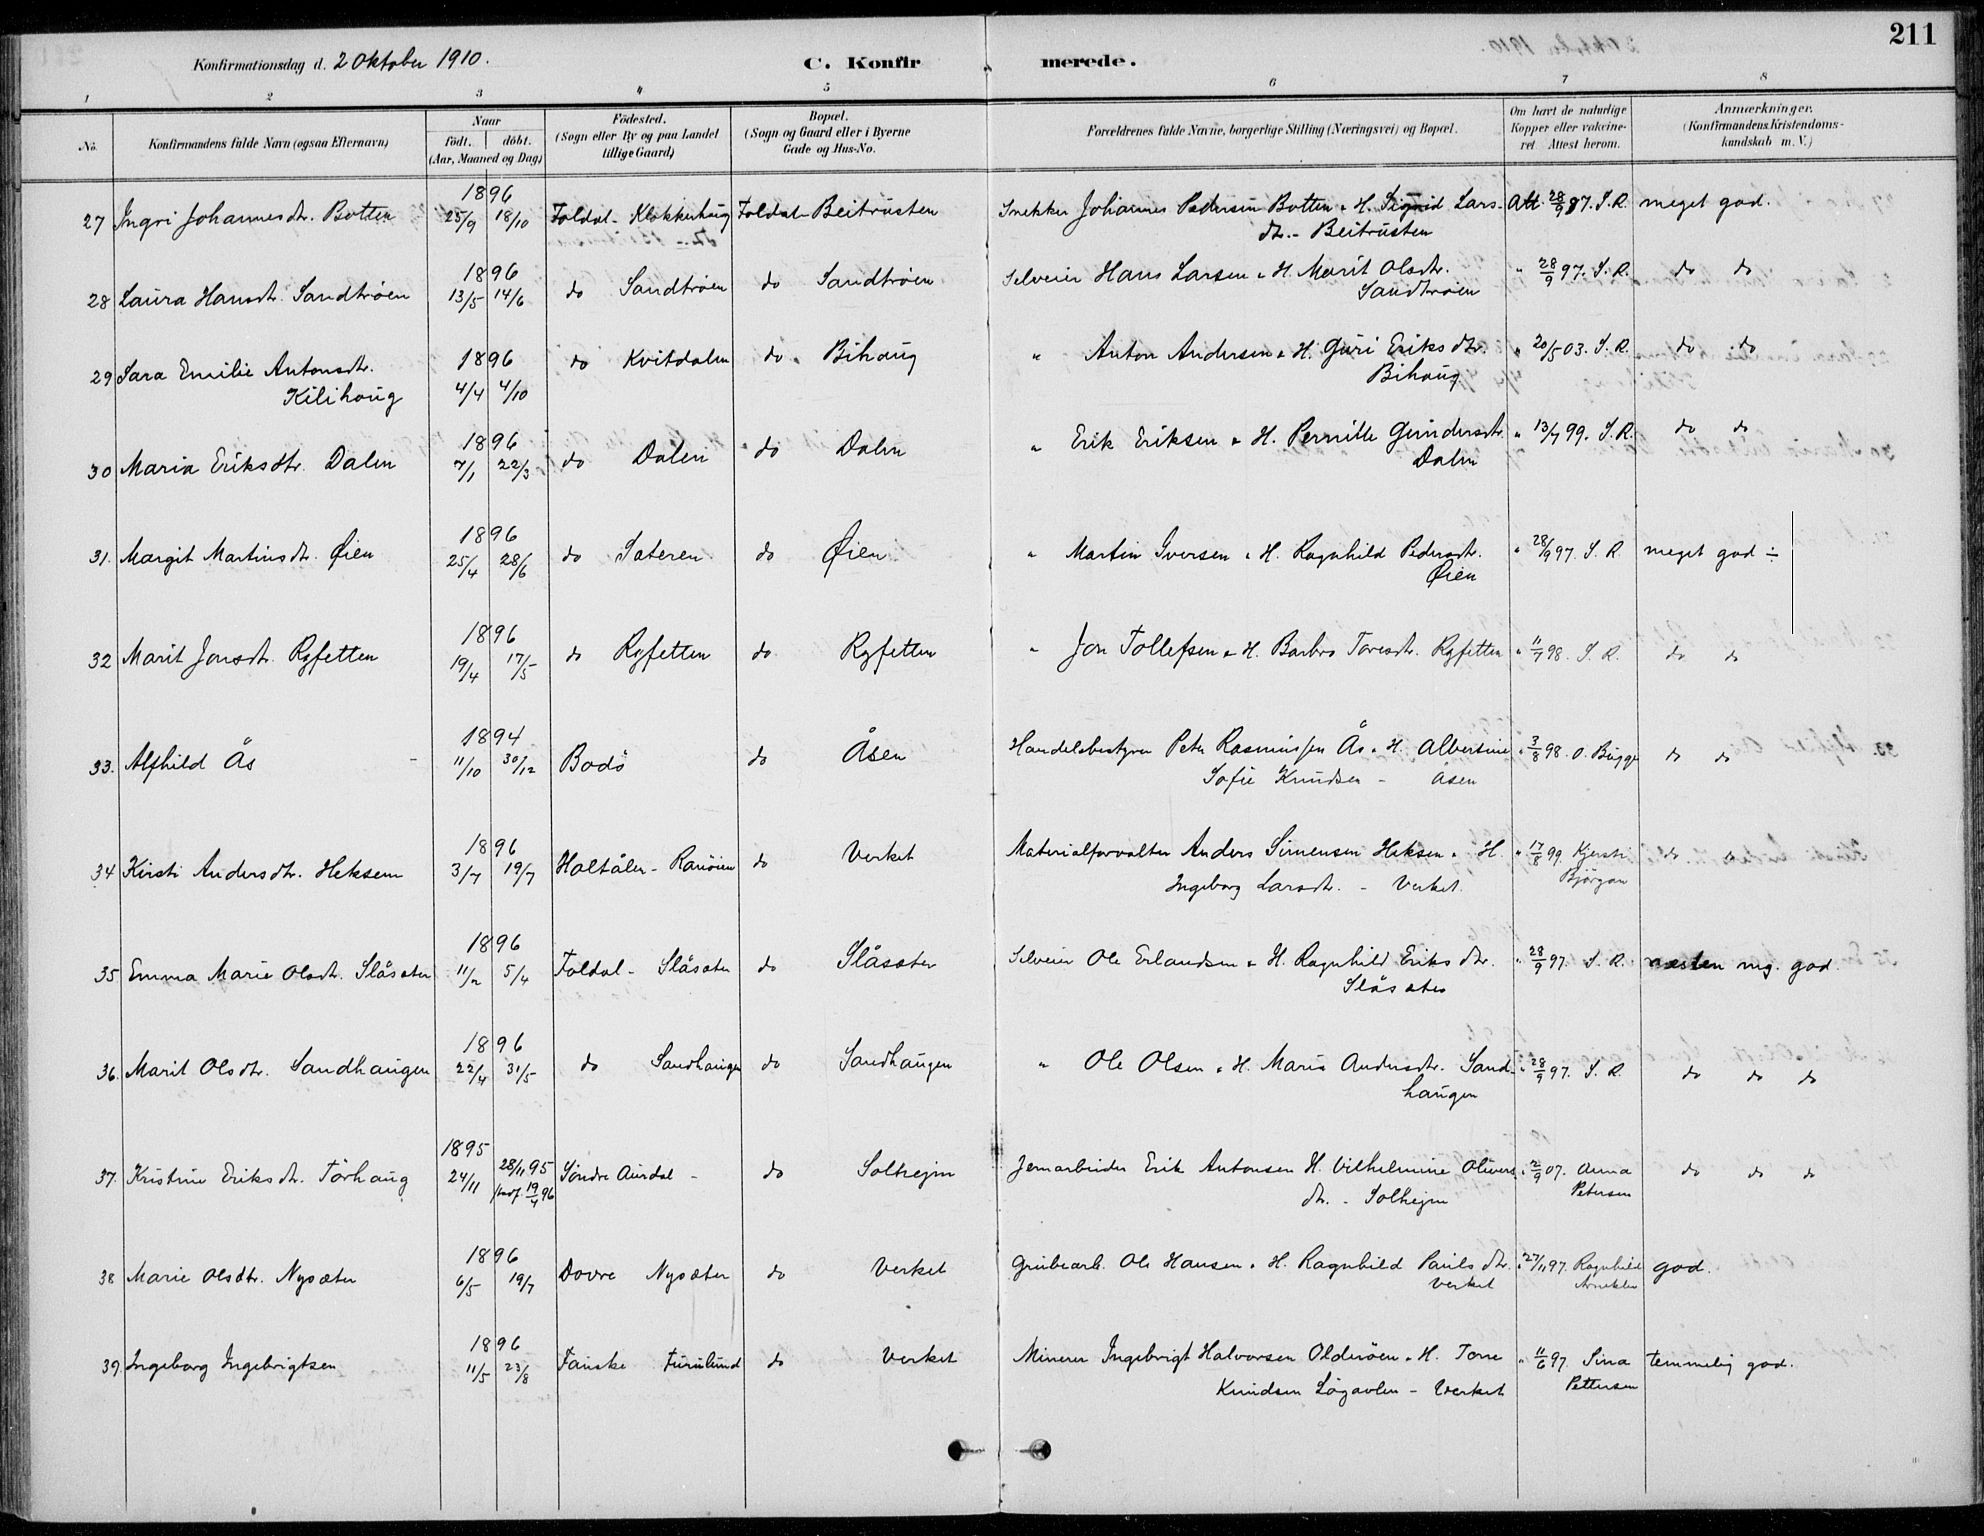 211
Konfirmationsdag d. 2 Oktober 1910.
C. Konfirmerede.
1 2 3 4 5 6 7 8
No. Konfirmandens fulde Navn (ogsaa Efternavn) Naar födt. döbt. (Aar, Maaned og Dag) Födested. (Sogn eller By og paa Landet tillige Gaard) Bopæl. (Sogn og Gaard eller i Byerne Gade og Hus-No. Forældrenes fulde Navne, borgerlige Stilling (Næringsvei) og Bopæl. Om havt de naturlige Kopper eller vakcineret. Attest herom. Anmærkninger. (Konfirmandens Kristendomskundskab m.V.)
1896
27 Ingri Johannesdtr. Botten 25/9 18/10 Foldal - Klokkerhaug Foldal - Beitrusten Snekker Johannes Pedersen Botten & H. Sigrid Lars- Att. 28/9 97. S. R. meget god.
dtr. - Beitrusten
1896
28 Laura Hansdtr. Sandtrøen 13/5 14/6 do Sandtrøen do Sandtrøen Selveier Hans Larsen & H. Marit Olsdtr. " 28/9 97. S. R. do do
Sandtrøen
1896
29 Sara Emilie Antonsdtr. 4/4 4/10 do Kvitdalen do Bihaug " Anton Andersen & H. Guri Eriksdtr. " 20/5 03. S. R. do do
Kilihaug Bihaug
1896
30 Maria Eriksdtr. Dalen 7/1 22/3 do Dalen do Dalen " Erik Eriksen & H. Pernille Gundersdtr. " 13/7 99. S. R. do do
Dalen
1896
31. Margit Martinsdtr. Øien 25/4 28/6 do Sæteren do Øien " Martin Iversen & H. Ragnhild Pedersdtr. " 28/9 97. S. R. meget god ÷
Øien
1896
32 Marit Jonsdtr. Ryfetten 19/4 17/5 do Ryfetten do Ryfetten " Jon Tollefsen & H. Barbro Toresdtr. Ryfetten " 11/7 98. S. R. do do
1894
33. Alfhild Ås 11/10 30/12 Bodö do Åsen Handelsbestyrer Peter Rasmussen Ås & H. Albertine " 3/8 98. O. Bugge do do
Sofie Knudsen - Åsen
1896
34 Kirsti Andersdtr. Heksem 3/7 19/7 Holtålen - Ranöien do Verket Materialforvalter Anders Simensen Heksem & H. " 17/8 99. Kjersti do do
Ingeborg Larsdtr. - Verket. Bjørgan
1896
35 Emma Marie Olsdtr. Slåsæter 11/2 5/4 Foldal - Slåsæter do Slåsæter Selveier Ole Erlandsen & H. Ragnhild Eriksdtr. " 28/9 97. S. R. næsten mg. god.
Slåsæter
1896
36. Marit Olsdtr. Sandhaugen 22/4 31/5 do Sandhaugen do Sandhaugen " Ole Olsen & H. Maria Andersdtr. Sand- " 28/9 97. S. R. do do do
haugen
1895
37. Kristine Eriksdtr. Törhaug 24/11 28/11 95 Söndre Aurdal - do Solhejm Jernarbeider Erik Antonsen H. Vilhelmine Olivers " 2/9 07. Anna do do do
19/4 96 dtr. - Solhejm Petersen
1896
38 Marie Olsdtr. Nysæter 6/5 19/7 Dovre Nysæter do Verket Grubearb. Ole Hansen & H. Ragnhild Paulsdtr. " 27/11 97. Ragnhild god.
Verket
1896
39. Ingeborg Ingebrigtsen 11/5 23/8 Fauske Furulund do Verket Minerer Ingebrigt Halvorsen Olderöen & H. Torre " 11/6 97. Sina temmelig god.
Knudsen Lögavlen - Verket Pettersen